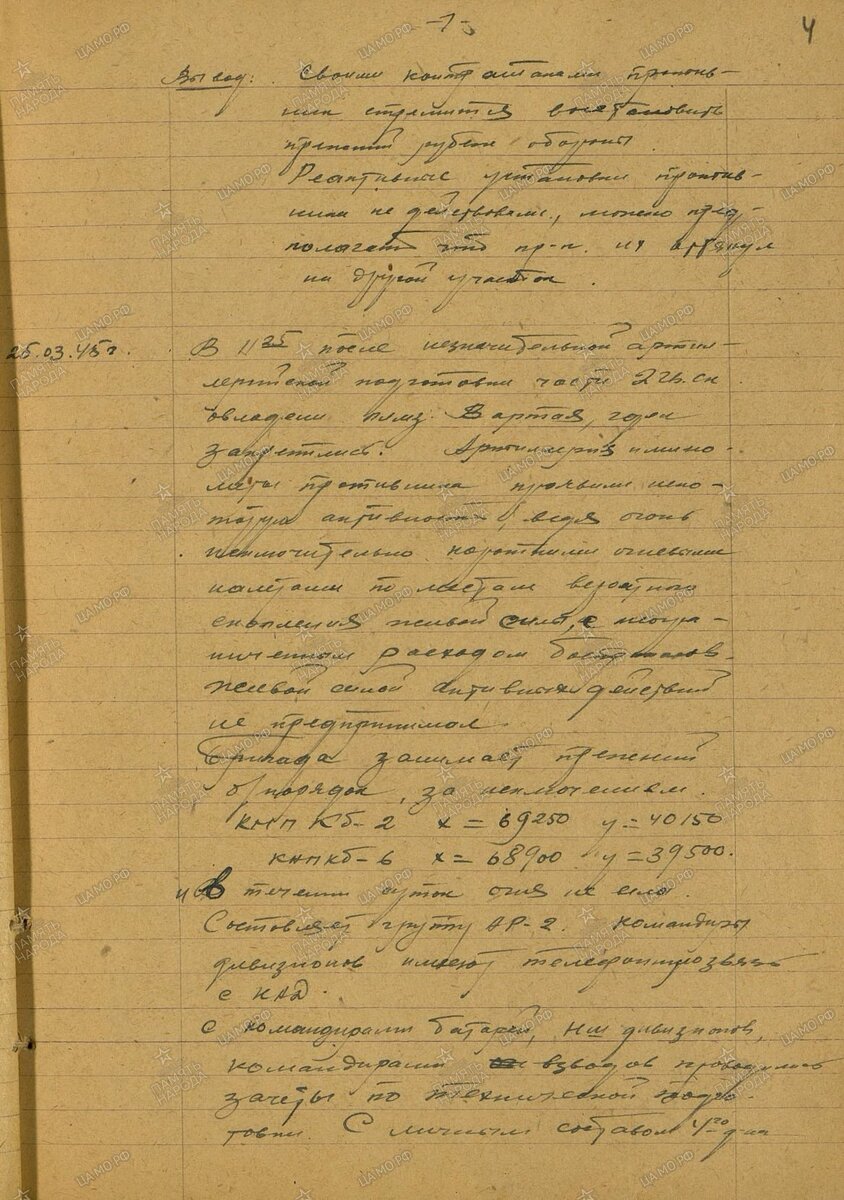 -7-
4
Вывод: Своими контратаками против-
ник стремится восстановить
прежний рубеж обороны.
Реактивные установки против-
ника не действовали, можно пред-
полагать что пр-к. их оттянул
на другой участок.
25.03.45г. В 11 25 после незначительной артил-
лерийской подготовки части 2 гв. ск
овладели пямз. Вартая, где и
закрепились. Артиллерия и мино-
меты противника проявили неко-
торую активность, ведя огонь
исключительно короткими огневыми
налетами по местам вероятного
скопления живой силы, с неогра-
ниченным расходом боеприпасов.
Живой силой активных действий
не предпринимал.
Бригада занимает прежний
б/порядок, за исключением.
КНП КБ-2 х = 69250 у = 40150
КНП КБ-6 х = 68900 у = 39500.
В течении суток огня не вела.
Составляет группу АР-2. Командиры
дивизионов имеют телефонную связь
с НАД.
С командирами батарей, НШ дивизионов,
командирами взводов проводились
зачеты по технической подго-
товки. С личным составом 4го д-на